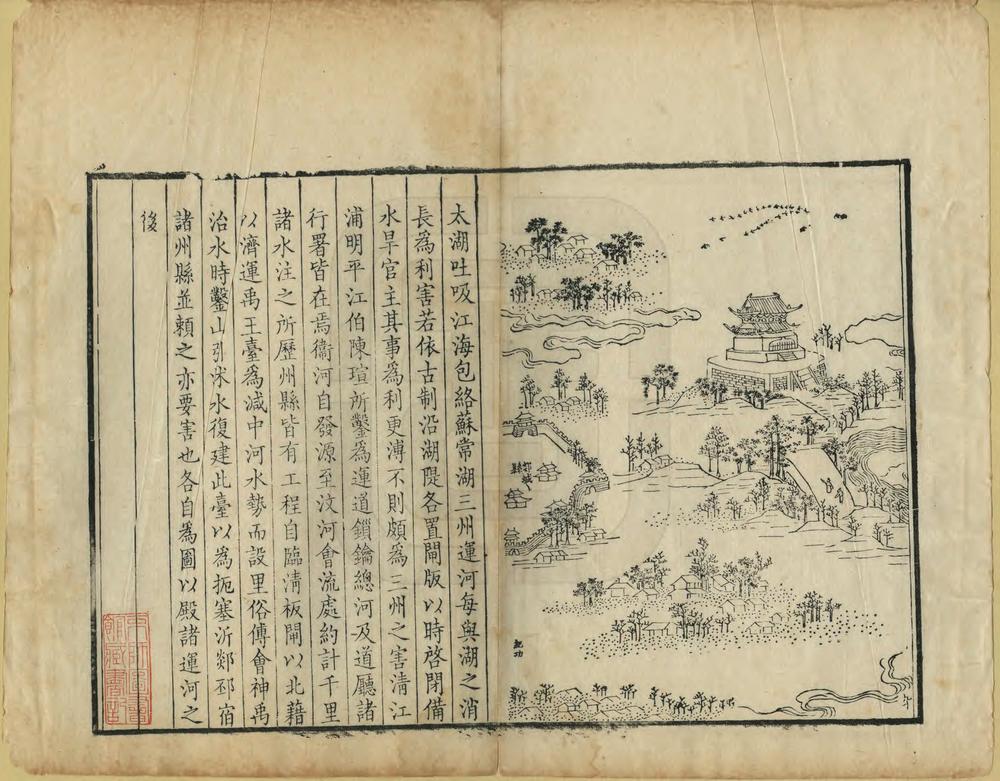 太湖吐吸江海包絡蘇常湖三州運河每與湖之消
長爲利害若依古制沿湖隄各置閘版以時啓閉備
水旱官主其事爲利更溥不則頗爲三州之害清江
浦明平江伯陳瑄所鑿爲運道鎻鑰總河及道廳諸
行署皆在焉衞河自發源至汶河會流處約計千里
諸水注之所歷州縣皆有工程自臨淸板閘以北藉
以濟運禹王臺爲減中河水勢而設里俗傅會神禹
治水時鑿山引沭水復建此臺以爲扼塞沂郯邳宿
諸州縣並賴之亦要害也各自爲圖以殿諸運河之
後
郯城
縣
紀功